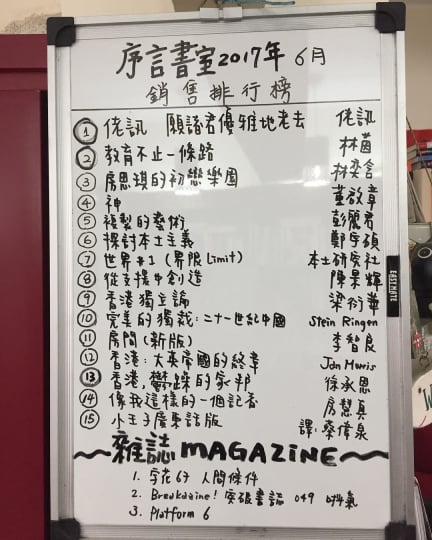 序言書室2017年 6月
銷售排行榜
① 佬訊 願諸君優雅地老去 佬訊
② 教育不止一條路 林茵
③ 房思琪的初戀樂園 林奕含
④ 神 董啟章
⑤ 複製的藝術 彭麗君
⑥ 探討本土主義 鄭宇碩
⑦ 世界#1 (界限 Limit) 本土研究社
⑧ 從支援中創造 陳果輝
⑨ 香港獨立論
⑩ 完美的獨裁:二十一世紀中國 Stein Ringen
⑪ 房間(新版) 李智良
⑫ 香港:大英帝國的終章 Jan Morris
⑬ 香港,鬱躁的家邦 徐承恩
⑭ 像我這樣的一個記者 房慧真
⑮ 小王子廣東話版 譯:蔡偉泉
~雜誌 MAGAZINE~
1. 字花67 人間條件
2. Breakazine! 突破書誌 049 唞氣
3. Platform 6